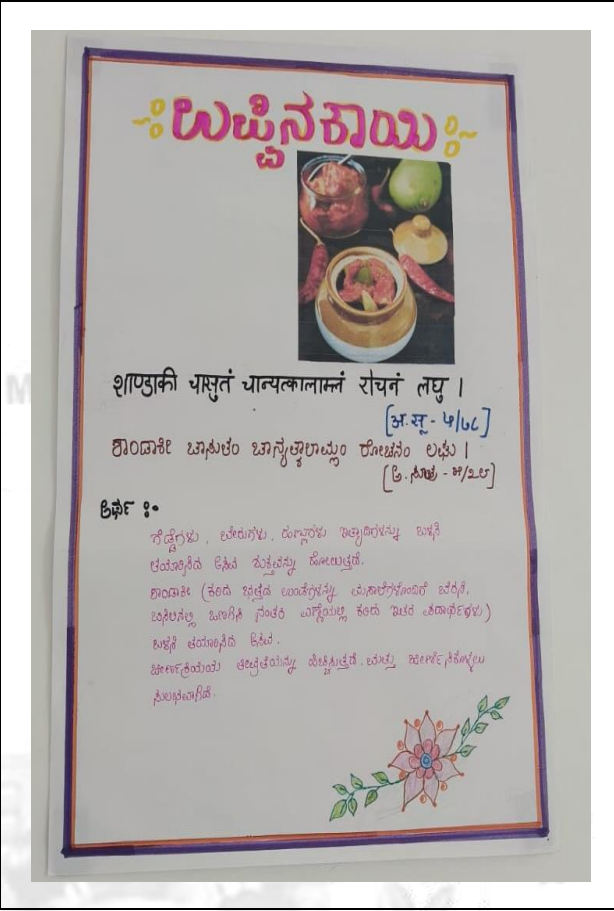 ಉಪ್ಪಿನಕಾಯಿ
शाण्डाकी चासुतं चान्यत्कालाम्लं रोचनं लघु ।
[अ.सू - ५/७८]
ಶಾಂಡಾಕೀ ಚಾಸುತಂ ಚಾನ್ಯತ್ಕಾಲಾಮ್ಲಂ ರೋಚನಂ ಲಘು |
ಅರ್ಥ :-
ಗೆಡ್ಡೆಗಳು, ಬೇರುಗಳು, ಹಣ್ಣುಗಳು ಇತ್ಯಾದಿಗಳನ್ನು ಬಳಸಿ
ತಯಾರಿಸಿದ ಆಸವ ಶುಕ್ತವನ್ನು ಹೋಲುತ್ತದೆ.
ಶಾಂಡಾಕೀ (ಕರಿದ ಉಂಡೆಗಳನ್ನು ಮಸಾಲೆಗಳೊಂದಿಗೆ ಬೆರೆಸಿ,
ಬಿಸಿಲಿನಲ್ಲಿ ಒಣಗಿಸಿ ನಂತರ ಎಣ್ಣೆಯಲ್ಲಿ ಕರಿದು ಇತರ ಪದಾರ್ಥಗಳು)
ಬಳಸಿ ತಯಾರಿಸಿದ ಆಸವ.
ತೀವ್ರತೆಯನ್ನು ಹೆಚ್ಚಿಸುತ್ತದೆ. ಮತ್ತು ಜೀರ್ಣಿಸಿಕೊಳ್ಳಲು
ಸುಲಭವಾಗಿದೆ.